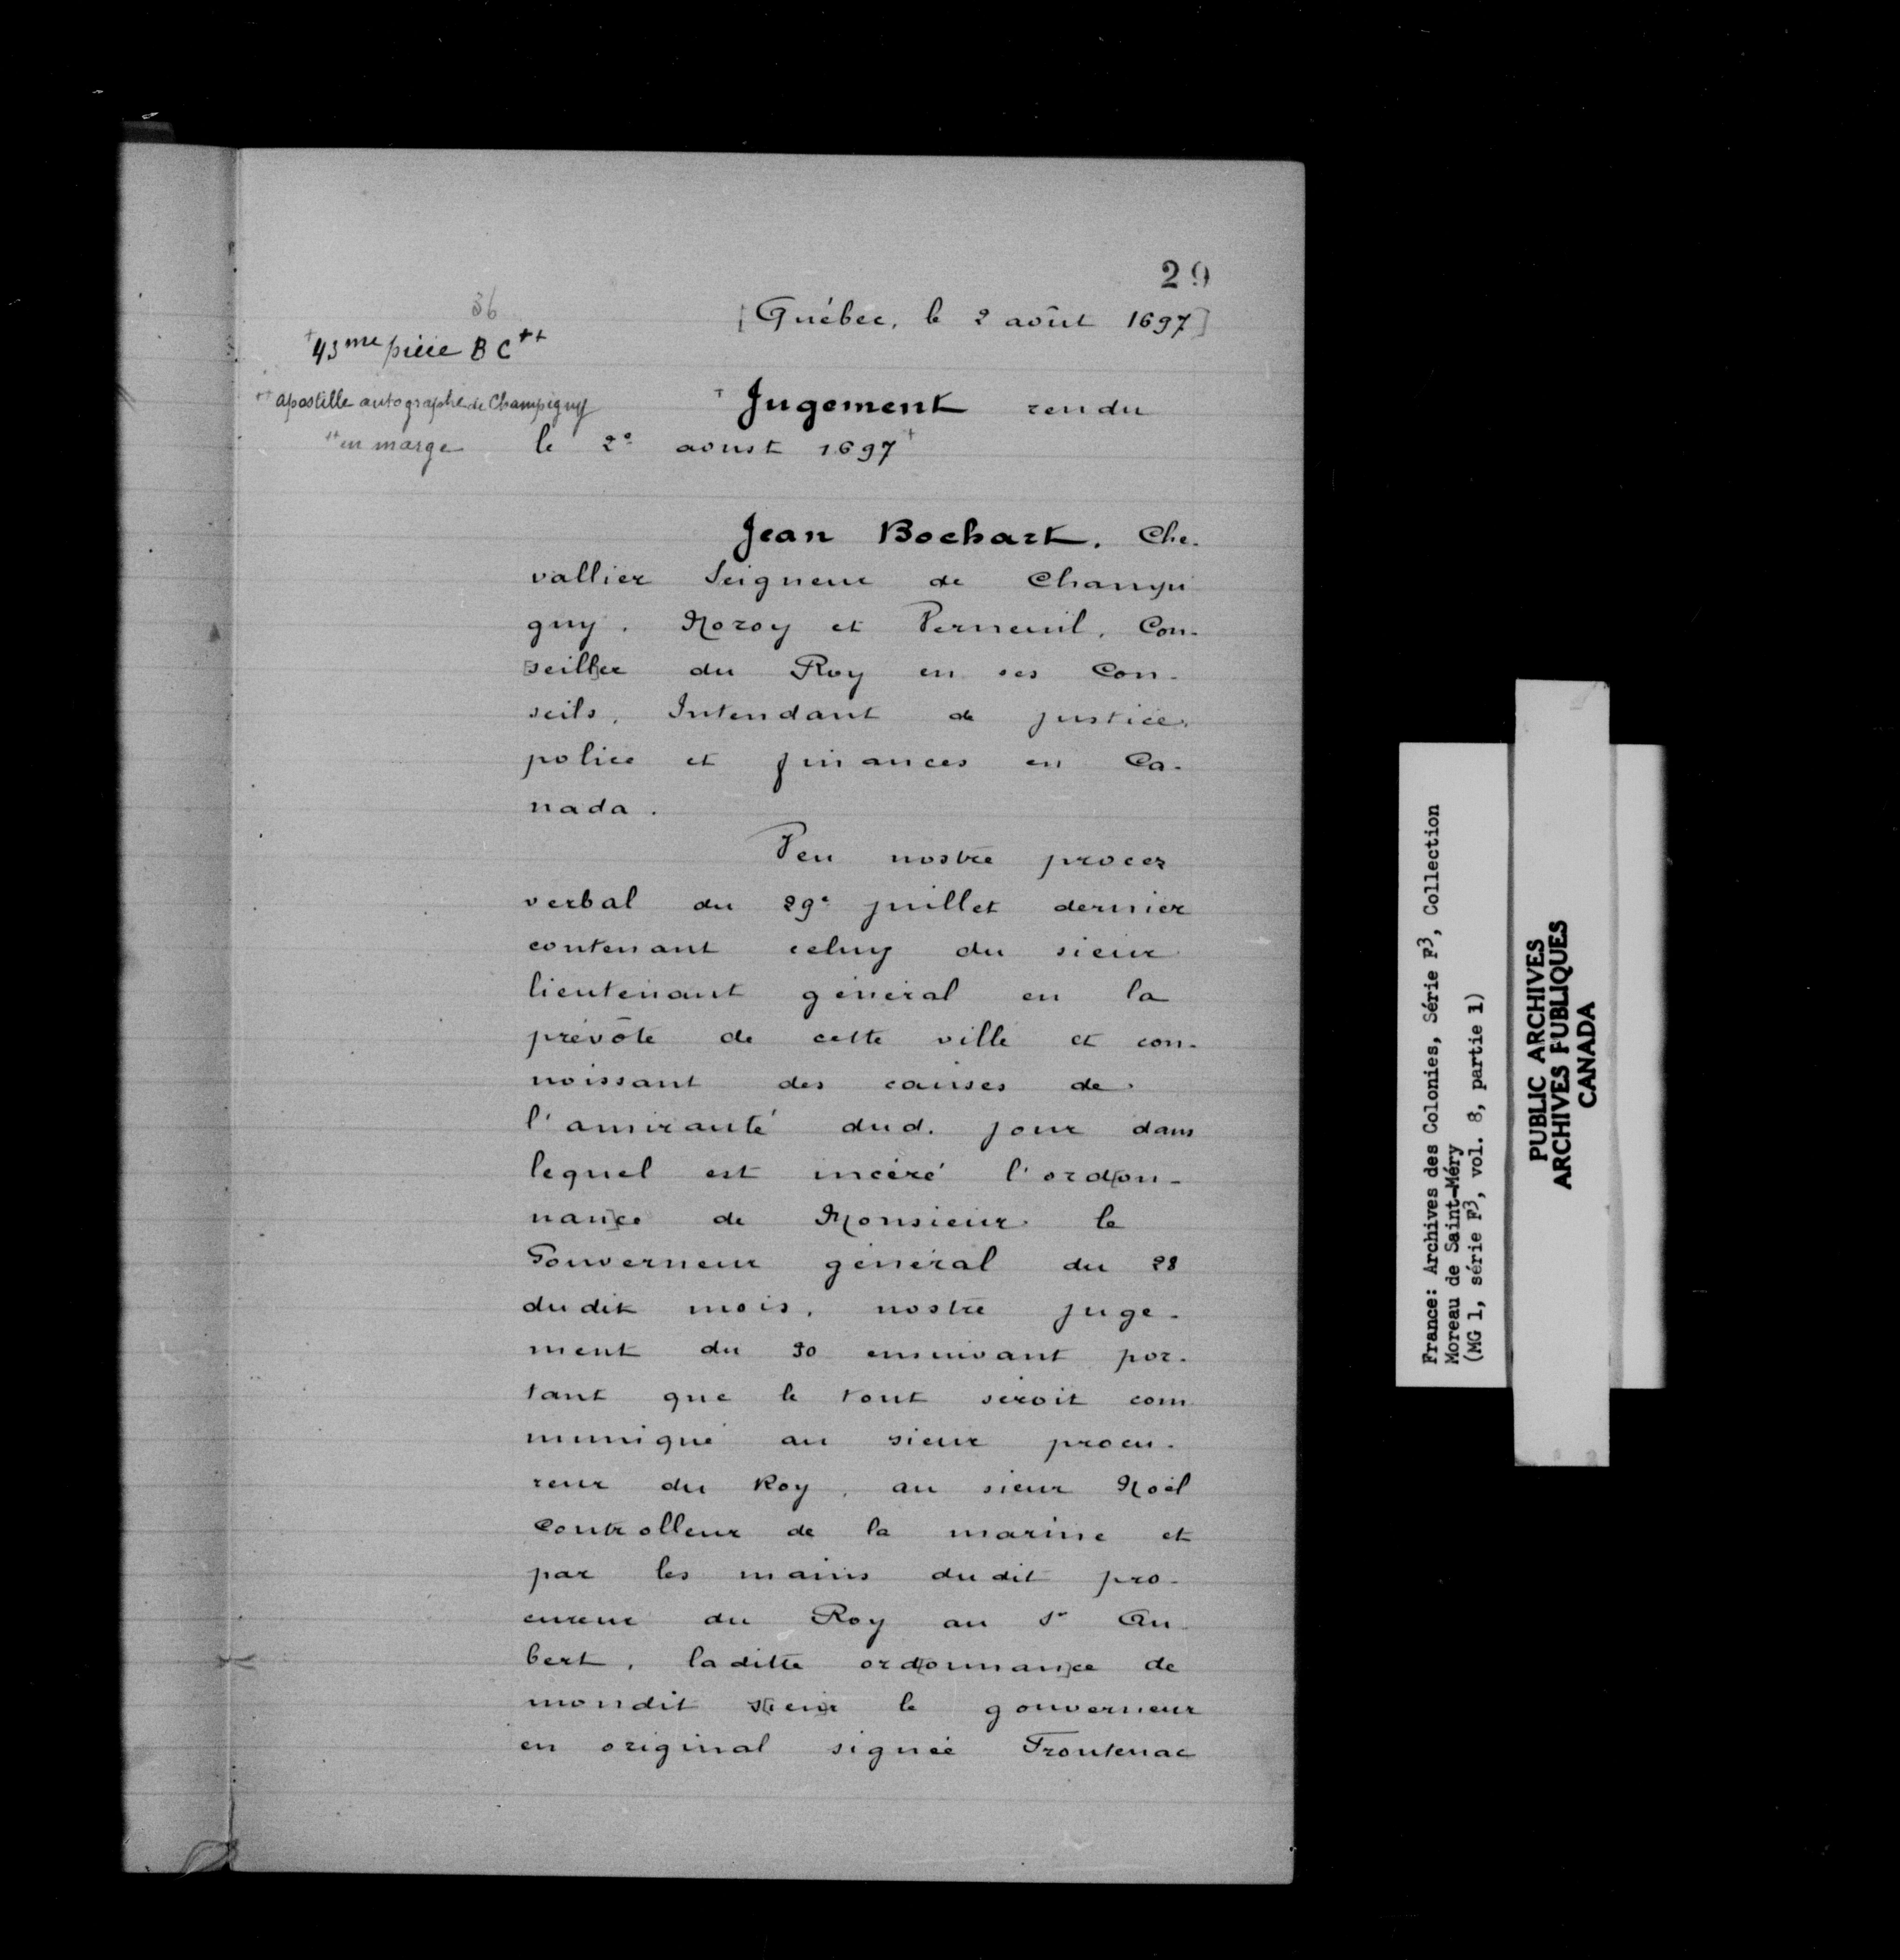 29
[Québec, le 2 août 1697]
36
+ 43me pièce B C ++
++ apostille autographe de Champigny
++ en marge
+ Jugement rendu
le 2e aoust 1697 +
Jean Bochart. Che-
vallier Seigneur de Champi
gny. Noroy et Verneuil. Con-
seiller du Roy en ses Con-
seils, Intendant de justice,
police et finances en Ca-
nada.
Veu nostre procez
verbal du 29e juillet dernier
contenant celuy du sieur
lieutenant général en la
prévôté de cette ville et con-
noissant des causes de
l'amirauté dud. jour dans
lequel est incéré l'ordon-
nance de Monsieur le
Gouverneur général du 28
dudit mois, nostre juge-
ment du 30 ensuivant por-
tant que le tout seroit com
muniqué au sieur procu-
reur du Roy, au sieur Noël
Controlleur de la marine et
par les mains dudit pro-
cureur du Roy au Sr Au-
bert, laditte ordonnance de
mondit sieur le gouverneur
en original signée Frontenac
France: Archives des Colonies, Série F3, Collection
Moreau de Saint-Méry
(MG 1, série F3, vol. 8, partie 1)
PUBLIC ARCHIVES
ARCHIVES PUBLIQUES
CANADA